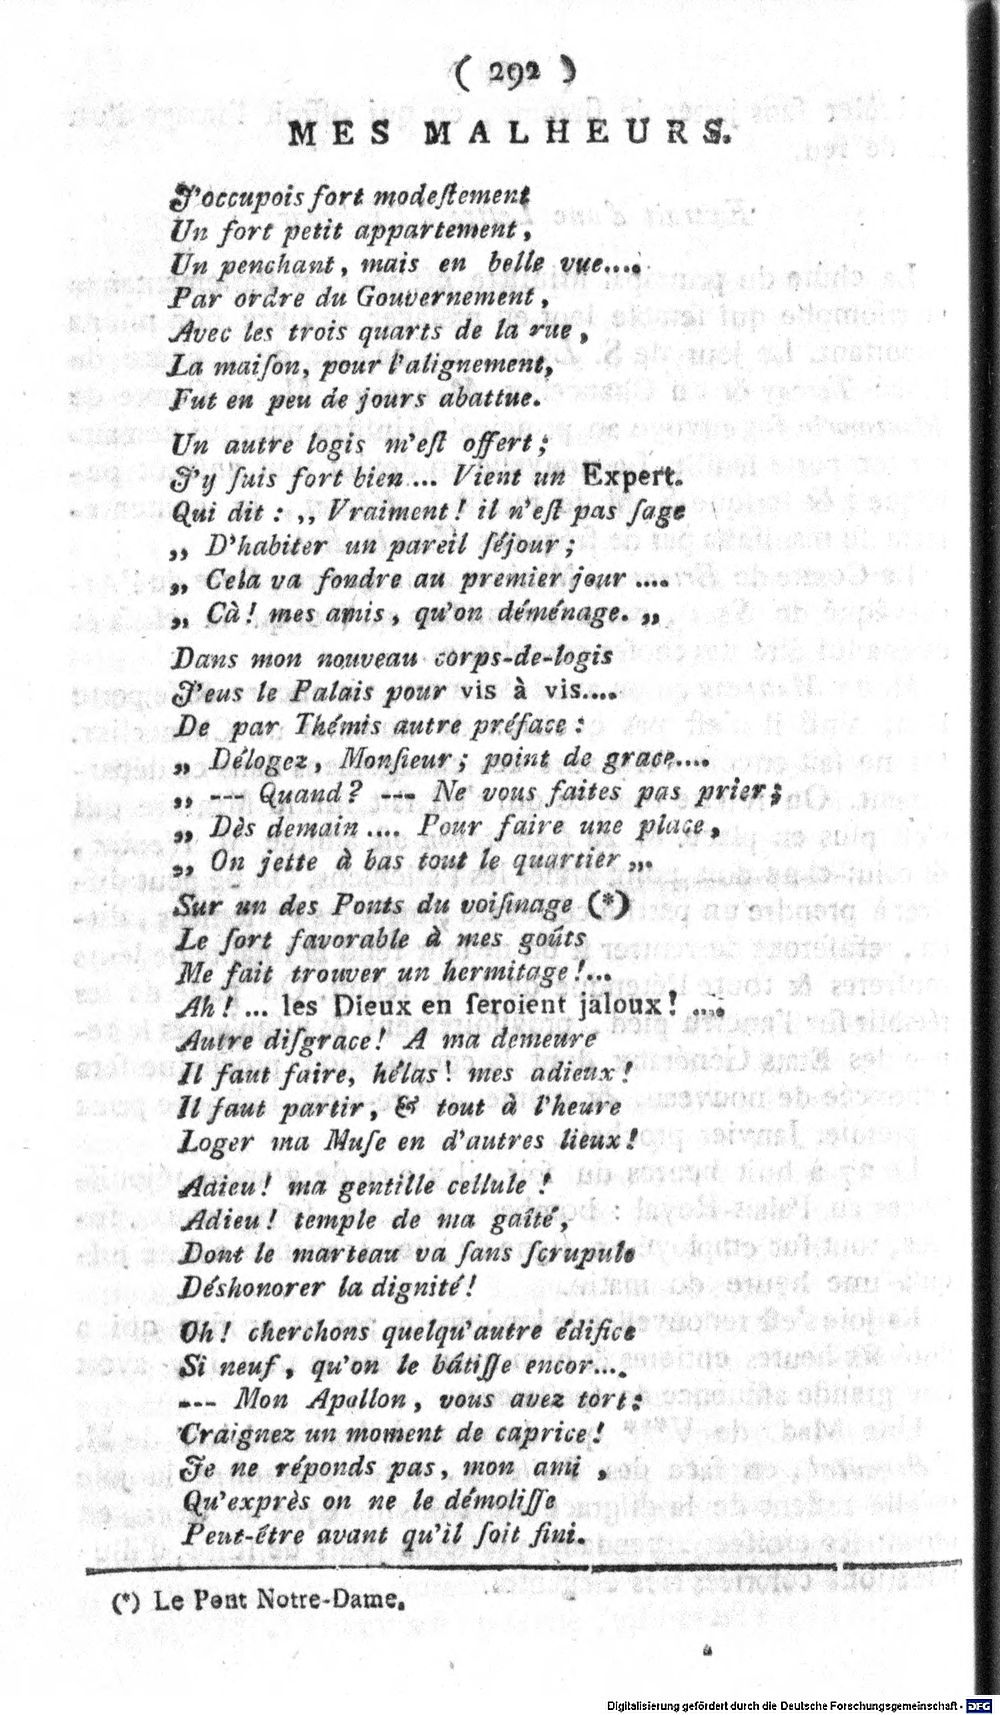 ( 292 )
MES MALHEURS.
J'occupois fort modeſtement
Un fort petit appartement,
Un penchant, mais en belle vue....
Par ordre du Gouvernement,
Avec les trois quarts de la rue,
La maiſon, pour l'alignement,
Fut en peu de jours abattue.
Un autre logis m'eſt offert;
J'y ſuis fort bien... Vient un Expert.
Qui dit : ,, Vraiment! il n'eſt pas ſage
,, D'habiter un pareil ſéjour;
,, Cela va fondre au premier jour ....
,, Cà! mes amis, qu'on déménage. ,,
Dans mon nouveau corps-de-logis
J'eus le Palais pour vis à vis....
De par Thémis autre préface :
,, Délogez, Monſieur; point de grace....
,, --- Quand? --- Ne vous faites pas prier;
,, Dès demain.... Pour faire une place,
,, On jette à bas tout le quartier ,,.
Sur un des Ponts du voiſinage (*)
Le ſort favorable à mes goûts
Me fait trouver un hermitage!...
Ah! ... les Dieux en ſeroient jaloux! ....
Autre diſgrace! A ma demeure
Il faut faire, hélas! mes adieux!
Il faut partir, & tout à l'heure
Loger ma Muſe en d'autres lieux!
Adieu! ma gentille cellule!
Adieu! temple de ma gaîté,
Dont le marteau va ſans ſcrupule
Déshonorer la dignité!
Oh! cherchons quelqu'autre édifice
Si neuf, qu'on le bâtiſſe encor....
--- Mon Apollon, vous avez tort:
Craignez un moment de caprice!
Je ne réponds pas, mon ami,
Qu'exprès on ne le démoliſſe
Peut-être avant qu'il ſoit fini.
(*) Le Pont Notre-Dame.
Digitalisierung gefördert durch die Deutsche Forschungsgemeinschaft - DFG